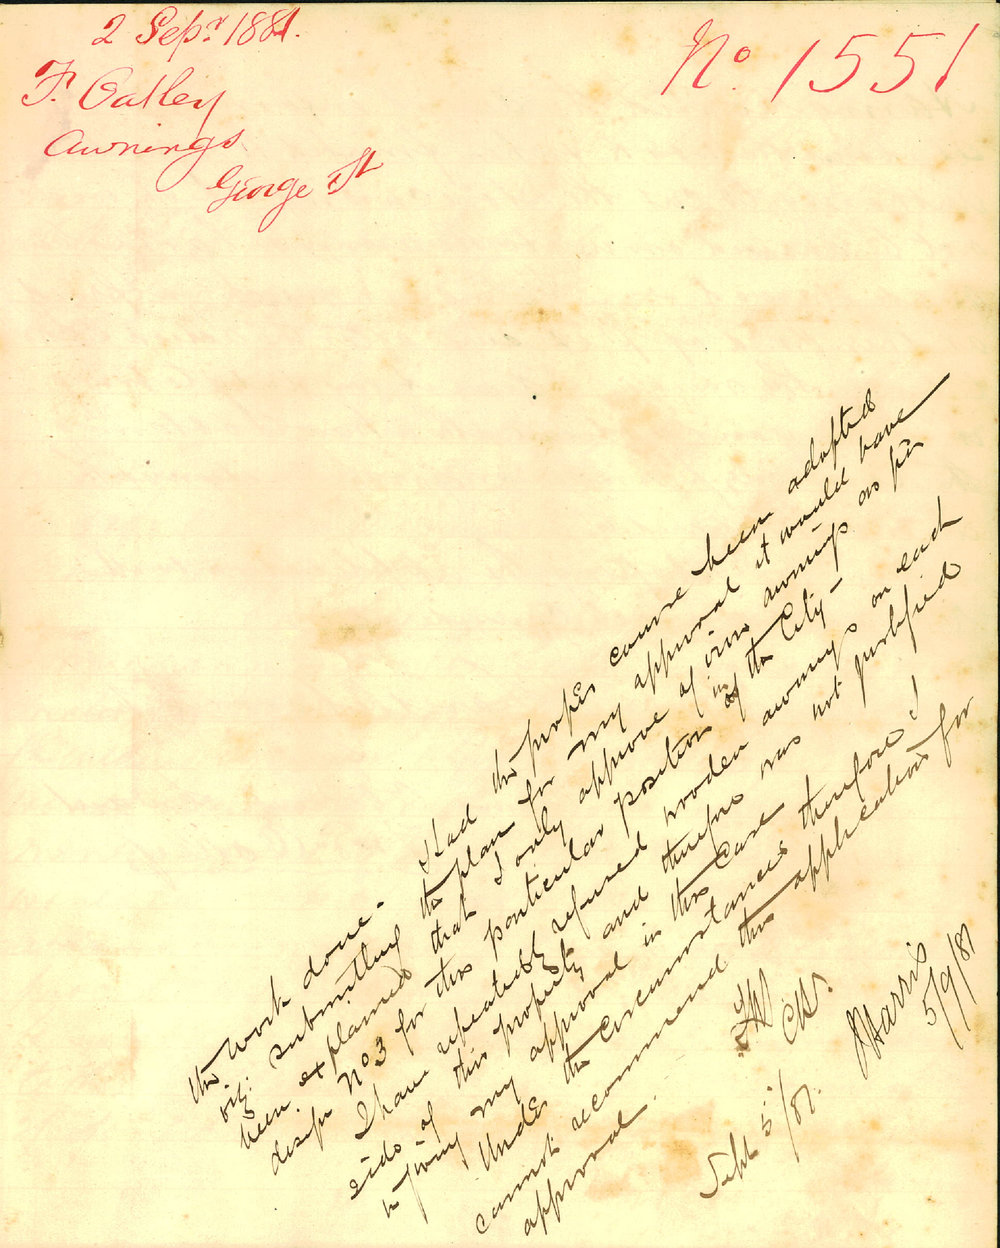 2 Sepr. 1881.
F. Oatley
Awnings
George St
No. 1551
the work done. Had the proper course been adopted
viz: submitting the plan for my approval it would have
been explained that I only approve of iron awnings as per
design No 3 for this particular position in the City –
I have repeatedly refused wooden awnings on each
side of this property and therefore was not justified
in giving my approval in this case
Under the circumstances therefore I
cannot recommend this application for
approval.
CS.
Sept 5/81.
Harris
5/9/81